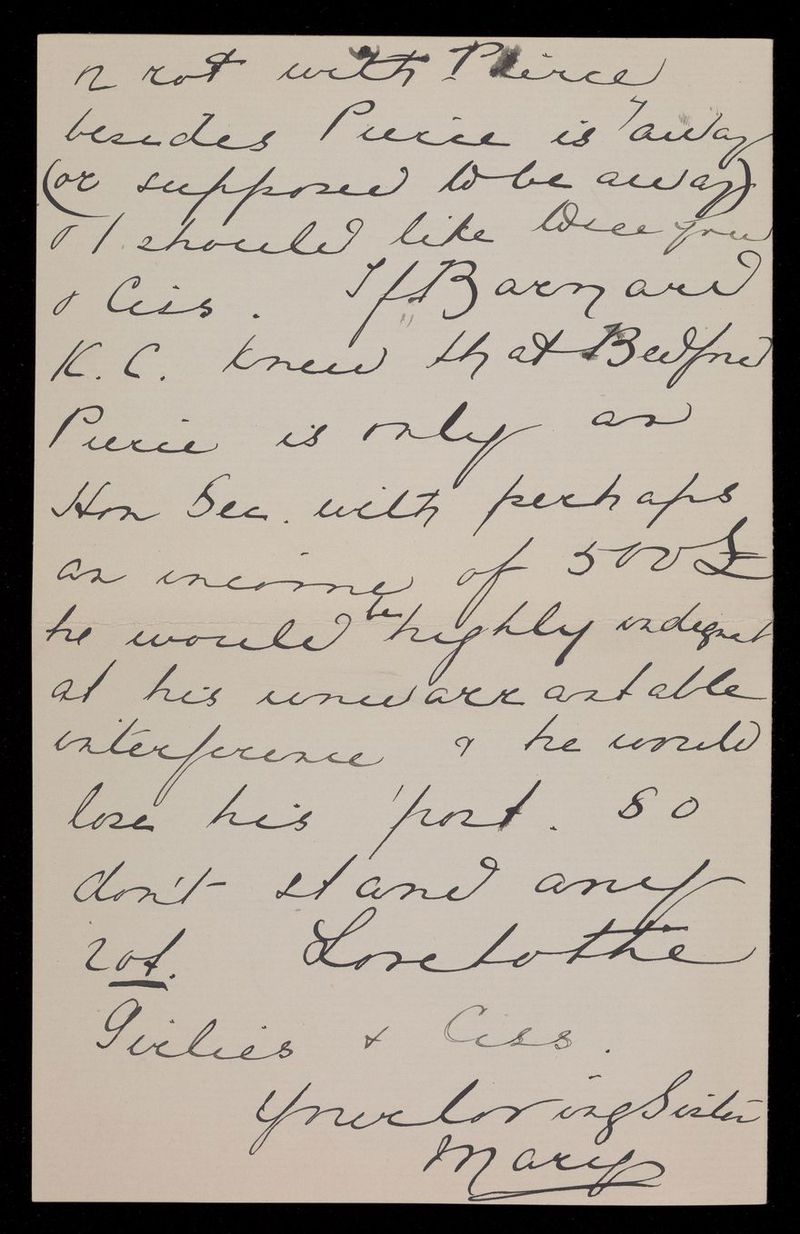 & not with Pierce
besides Pierce is away
(or supposed to be away)
& I should like to see you
& Ciss. If Barnard
K. C. knew that Bedford
Pierce is only an
Hon Sec. with perhaps
an income of 500£
he would be highly indignant
at his unwarrantable
interference & he would
lose his post. So
don't stand any
rot. Love to the
Girlies & Ciss.
Your loving Sister
Mary